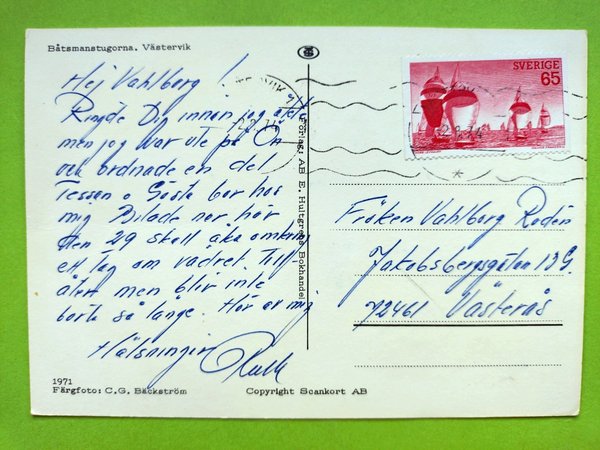 Båtsmanstugorna. Västervik
Hej Vahlborg!
Ringde Dig innan jag åkte
men jag var ute på Ön
och ordnade en del
Tessan o Gösta bor hos
mig Bilade ner hör
den 29 skall åka omkring
ett tag om vädret
åter men blir inte
borta så länge. Hör av mig
Hälsningar Ruth
1971
Färgfoto: C.G. Bäckström
Förlag: AB E. Hultgrens Bokhandel
Copyright Scankort AB
SVERIGE
65
Fröken Vahlborg Rodén
Jakobsbergsgatan 13 G.
72461 Västerås